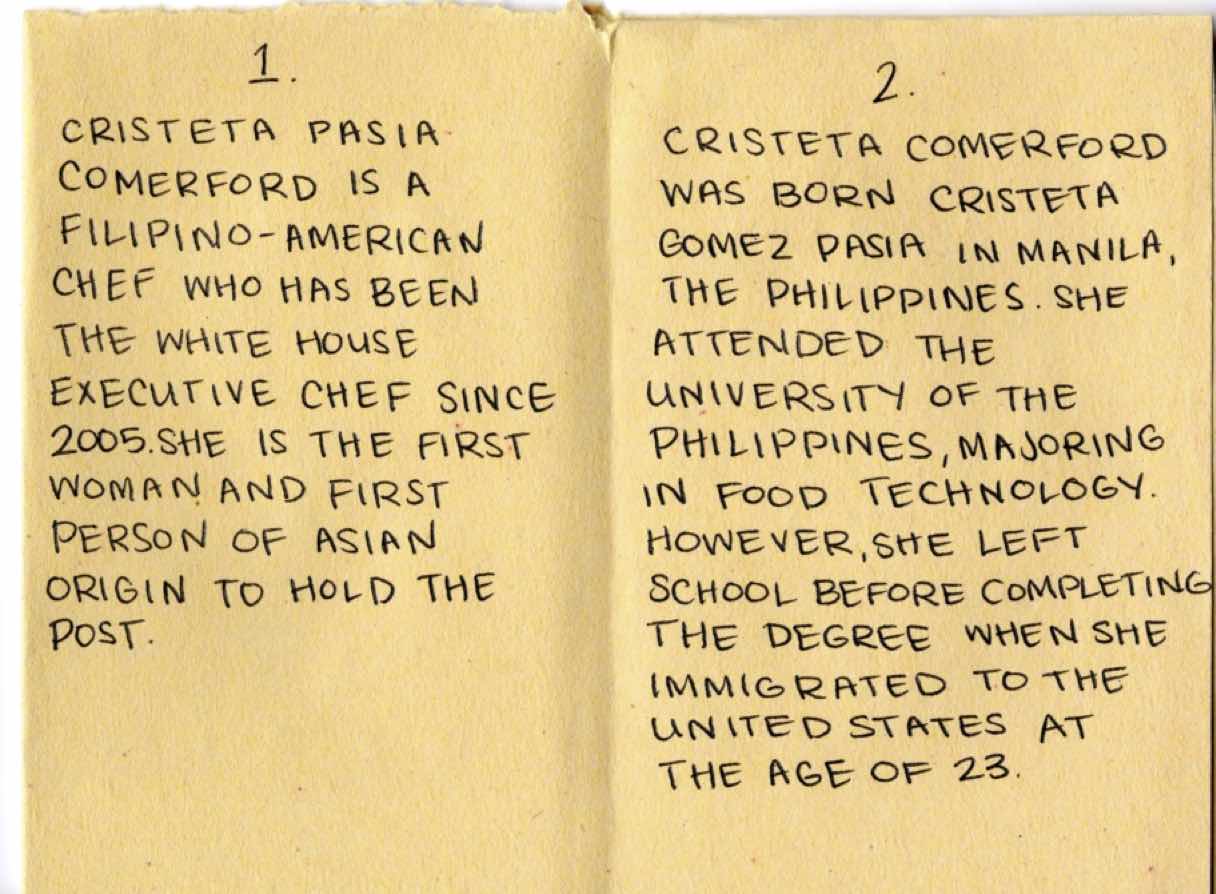 1.
CRISTETA PASIA
COMERFORD IS A
FILIPINO-AMERICAN
CHEF WHO HAS BEEN
THE WHITE HOUSE
EXECUTIVE CHEF SINCE
2005.SHE IS THE FIRST
WOMAN AND FIRST
PERSON OF ASIAN
ORIGIN TO HOLD THE
POST.
2.
CRISTETA COMERFORD
WAS BORN CRISTETA
GOMEZ PASIA IN MANILA,
THE PHILIPPINES. SHE
ATTENDED THE
UNIVERSITY OF THE
PHILIPPINES, MAJORING
IN FOOD TECHNOLOGY.
HOWEVER, SHE LEFT
SCHOOL BEFORE COMPLETING
THE DEGREE WHEN SHE
IMMIGRATED TO THE
UNITED STATES AT
THE AGE OF 23.